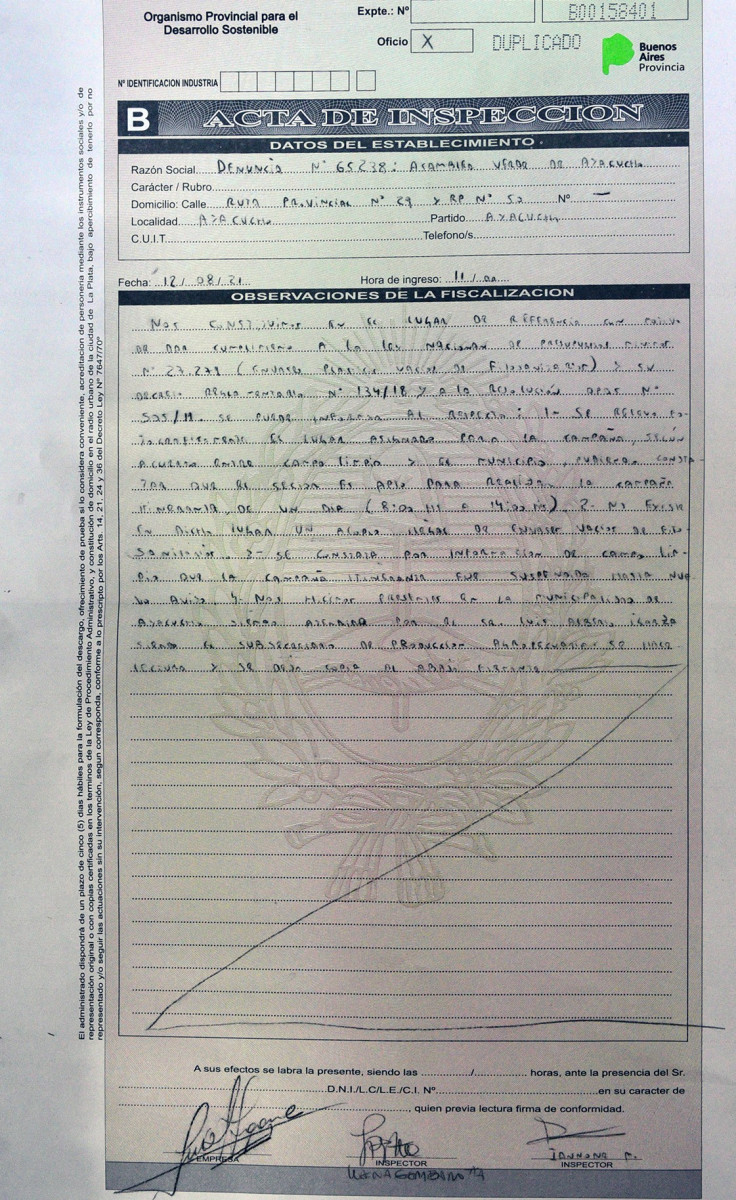 Organismo Provincial para el
Desarrollo Sostenible
Expte.: Nº
B00158401
Oficio X
DUPLICADO
Buenos
Aires
Provincia
Nº IDENTIFICACION INDUSTRIA
B ACTA DE INSPECCION
DATOS DEL ESTABLECIMIENTO
Razón Social DENUNCIA Nº 65238: ASAMBLEA VERDE DE AYACUCHO
Carácter / Rubro
Domicilio: Calle RUTA PROVINCIAL Nº 29 Y RP Nº 50 Nº —
Localidad AYACUCHO Partido AYACUCHO
C.U.I.T. Telefono/s
Fecha: 12/08/21 Hora de ingreso: 11/00
OBSERVACIONES DE LA FISCALIZACION
NOS CONSTITUIMOS EN EL LUGAR DE REFERENCIA CON MOTIVO
DE DAR CUMPLIMIENTO A LA LEY NACIONAL DE PRESUPUESTOS MINIMOS
Nº 27.279 (ENVASES PLASTICOS VACIOS DE FITOSANITARIOS) Y SU
DECRETO REGLAMENTARIO Nº 134/18 Y A LA RESOLUCIÓN OPDS Nº
505/19. SE PUEDE INFORMAR AL RESPECTO: 1- SE RELEVO FO-
TOGRAFICAMENTE EL LUGAR ASIGNADO PARA LA CAMPAÑA, SEGÚN
ACUERDO ENTRE CAMPO LIMPIO Y EL MUNICIPIO, PUDIENDO CONSTA-
TAR QUE EL SECTOR ES APTO PARA REALIZAR LA CAMPAÑA
ITINERANTE DE UN DIA (8:00 A 14:00 HS) 2- NO EXISTE
EN DICHO LUGAR UN ACOPIO ILEGAL DE ENVASES VACIOS DE FITO-
SANITARIOS. 3- SE CONSTATA POR INFORMACION DE CAMPO LIM-
PIO QUE LA CAMPAÑA ITINERANTE FUE SUSPENDIDA HASTA NUE-
VO AVISO. 4- NOS HICIMOS PRESENTES EN LA MUNICIPALIDAD DE
AYACUCHO SIENDO ATENDIDO POR EL SR. LUIS ALBERTO
SIENDO EL SUBSECRETARIO DE PRODUCCION AGROPECUARIA SE HACE
LECTURA Y SE DEJA COPIA AL ABAJO FIRMANTE
A sus efectos se labra la presente, siendo las / horas, ante la presencia del Sr.
D.N.I./L.C/L.E./C.I. Nº en su caracter de
, quien previa lectura firma de conformidad.
EMPRESA
INSPECTOR
IANNONE P.
INSPECTOR
El administrado dispondrá de un plazo de cinco (5) días hábiles para la formulación del descargo, ofrecimiento de prueba si lo considera conveniente, acreditacion de personeria mediante los instrumentos sociales y/o de
representación original o con copias certificadas en los terminos de la Ley de Procedimiento Administrativo, y constitución de domicilio en el radio urbano de la ciudad de La Plata, bajo apercibimiento de tenerlo por no
representado y/o seguir las actuaciones sin su intervención, segun corresponda, conforme a lo prescripto por los Arts. 14, 21, 24 y 36 del Decreto Ley Nº 7647/70º